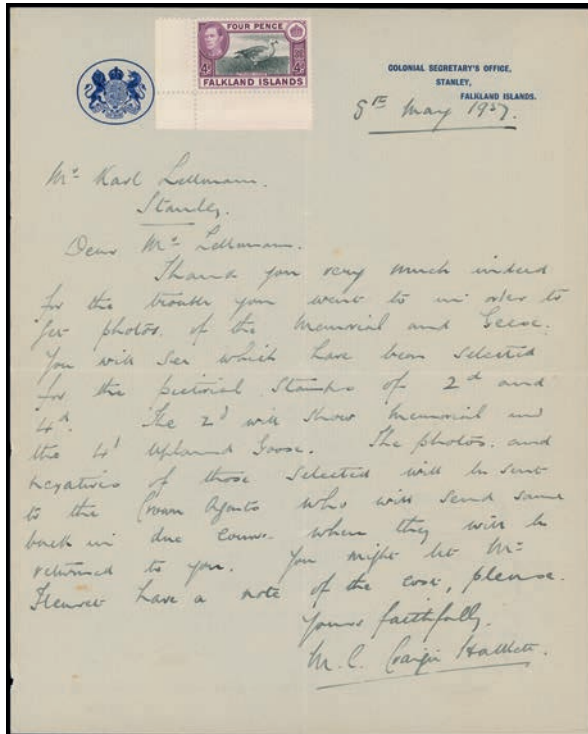 FOUR PENCE
4d 4d
FALKLAND ISLANDS
COLONIAL SECRETARY'S OFFICE,
STANLEY,
FALKLAND ISLANDS.
8th May 1937.
Mr Karl Lellmann.
Stanley.
Dear Mr Lellmann.
Thank you very much indeed
for the trouble you went to in order to
get photos. of the Memorial and Geese.
You will see which have been selected
for the pictorial Stamps of 2d and
4d. The 2d will show Memorial and
the 4d Upland Goose. The photos. and
negatives of those selected will be sent
to the Crown Agents who will send same
back in due course when they will be
returned to you. You might let Mr
have a note of the cost, please.
Yours faithfully.
M. C. Craigie Halkett.